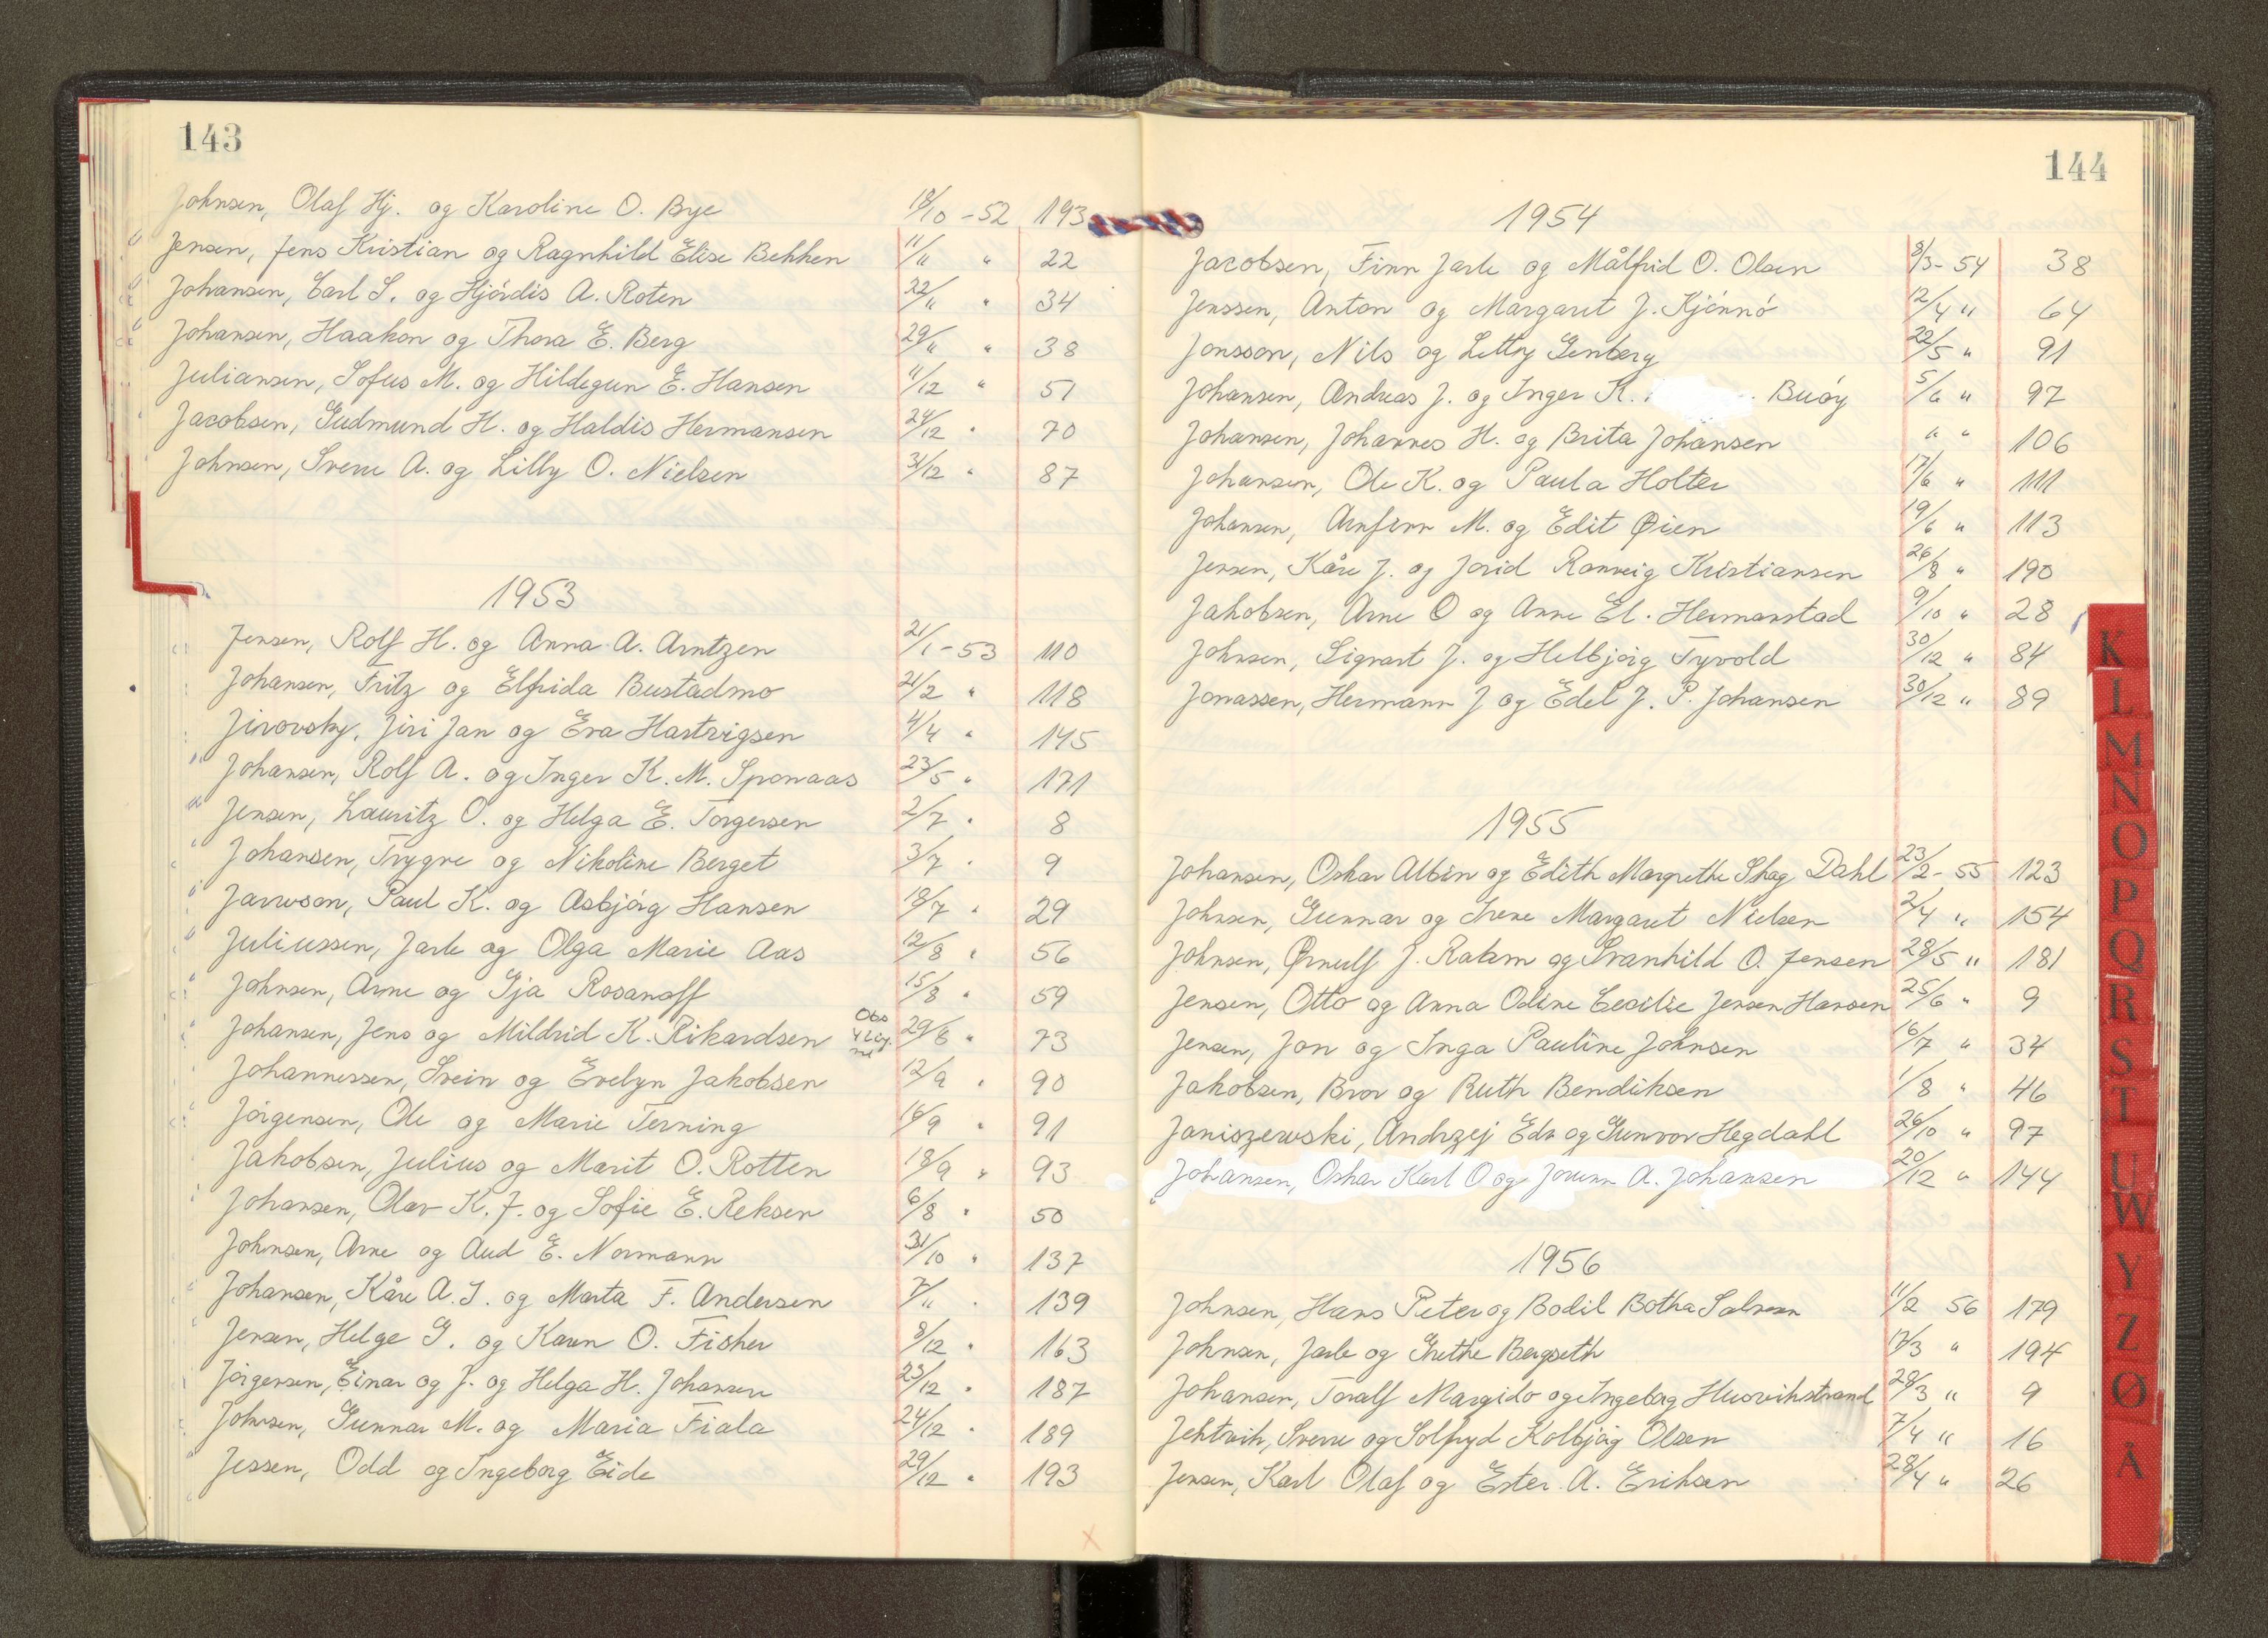 143
Johnsen, Olaf Hj. og Karoline O. Bye 18/10 - 52 193
" Jensen, Jens Kristian og Ragnhild Elise Bekken 11/11 " 22
Johansen, Carl S. og Hjördis A. Roten 22/11 " 34
" Johansen, Haakon og Thora E. Berg 29/11 " 38
Juliansen, Sofus M. og Hildegun E. Hansen 11/12 " 51
Jacobsen, Gudmund H. og Haldis Hermansen 24/12 " 70
Johnsen, Sverre A. og Lilly O. Nielsen 31/12 " 87
1953
Jensen, Rolf H. og Anna A. Arntzen 21/1 - 53 110
Johansen, Fritz og Elfrida Bustadmo 21/2 " 118
Jirovsky, Jiri Jan og Eva Hartvigsen 4/4 " 145
" Johansen, Rolf A. og Inger K. M. Sponaas 23/5 " 171
" Jensen, Lauritz O. og Helga E. Torgersen 2/7 " 8
" Johansen, Trygve og Nikoline Berget 3/7 " 9
" Paul K. og Asbjörg Hansen 18/7 " 29
" Juliussen, Jarle og Olga Marie Aas 12/8 " 56
" Johnsen, Arne og Gja Rosanoff 15/8 " 59
" Johansen, Jens og Mildrid K. Rikardsen Obs 29/8 " 73
Johannessen, Svein og Evelyn Jakobsen 12/9 " 90
Jörgensen, Ole og Marie Terning 16/9 " 91
Jakobsen, Julius og Marit O. Rotten 18/9 " 93
Johansen, Olav K. J. og Sofie E. Reksen 6/8 " 50
Johnsen, Arne og Aud E. Normann 31/10 " 137
" Johansen, Kåre A. J. og Marta F. Andersen 7/11 " 139
" Jensen, Helge G. og Karen O. Fisher 8/12 " 163
Jörgensen, Einar og J. og Helga H. Johansen 23/12 " 187
Johnsen, Gunnar M. og Maria Fiala 24/12 " 189
" Jessen, Odd og Ingeborg Eide 29/12 " 193
x
144
1954
Jacobsen, Finn Jarle og Målfrid O. Olsen 8/3 - 54 38
Jenssen, Anton og Margaret J. Kjönnö 12/4 " 64
Jonsson, Nils og Letty Genberg 22/5 " 91
Johansen, Andreas J. og Inger K. Buöy 5/6 " 97
Johansen, Johannes H. og Brita Johansen " " 106
Johansen, Ole K. og Paula Holter 17/6 " 111
Johansen, Arnfinn M. og Edit Øien 19/6 " 113
Jensen, Kåre J. og Jorid Ranveig Kristiansen 26/8 " 190
Jakobsen, Arne O og Anne El. Hermanstad 9/10 " 28
Johnsen, Sigvart J. og Helbjörg Tyvold 30/12 " 84
Jonassen, Hermann J og Edel J. P. Johansen 30/12 " 89
1955
Johansen, Oskar Albin og Edith Margrethe Skog Dahl 23/2 - 55 123
Johnsen, Gunnar og Irene Margaret Nielsen 2/4 " 154
Johnsen, Ørnulf J. Ratam og Svanhild O. Jensen 28/5 " 181
Jensen, Otto og Anna Odine Cecilie Jensen Hansen 25/6 " 9
Jensen, Jon og Inga Pauline Johnsen 16/7 " 34
Jakobsen, Bror og Ruth Bendiksen 1/8 " 46
Janiszewski, Andrzej Edv og Gunvor Hegdahl 26/10 " 97
Johansen, Oskar Karl O og Jorunn A. Johansen 20/12 " 144
1956
Johnsen, Hans Peter og Bodil Botha Salvesen 11/2 56 179
Johnsen, Jarle og Grethe Bergseth 17/3 " 194
Johansen, Toralf Margido og Ingeborg Husvikstrand 28/3 " 9
Jektvik, Sverre og Solfryd Kolbjörg Olsen 7/4 " 16
Jensen, Karl Olaf og Ester A. Eriksen 28/4 " 26
K
L
M
N
O
P
Q
R
S
T
U
W
Y
Z
Ø
Å